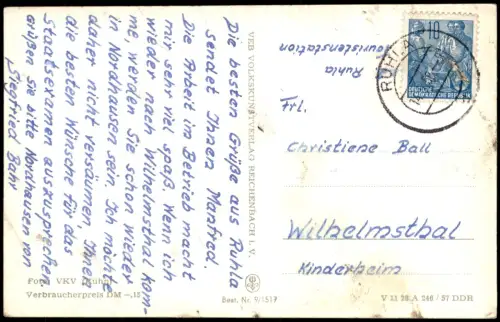 Die besten Grüße aus Ruhla
sendet Ihnen Manfred.
Die Arbeit im Betrieb macht
mir sehr viel spaß. Wenn ich
wieder nach Wilhelmsthal kom-
me, werden Sie schon wieder
in Nordhausen sein. Ich möchte
daher nicht versäumen, Ihnen
die besten Wünsche für das
Staatsexamen auszusprechen.
Grüßen sie bitte Nordhausen von
Siegfried Bahr
Foto VKV
Verbraucherpreis DM –.15
VEB VOLKSKUNSTVERLAG REICHENBACH I. V.
Best. Nr. 9/1517
Ruhla
Touristenstation
RUHLA
10
DEUTSCHE
DEMOKRATISCHE REPUBLIK
Frl.
Christiene Ball
Wilhelmsthal
Kinderheim
V 11 28 A 246 / 57 DDR